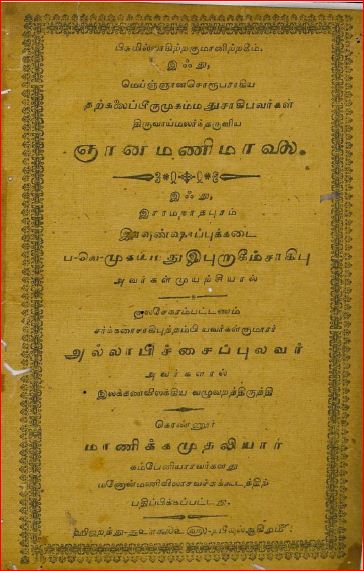 பிசுமில்லாகிற்றகுமானிற்றகீம்.
இஃது,
மெய்ஞ்ஞானசொரூபராகிய
தற்கலைப்பீருமுகம்மதுசாகிபவர்கள்
திருவாய்மலர்ந்தருளிய
ஞானமணிமாலை.
இஃது,
இராமநாதபுரம்
முகம்மதுஇபுறாகீம்சாகிபு
அவர்கள்முயற்சியால்
குலசேகரம்பட்டணம்
அவர்கள்குமாரர்
அல்லாபிச்சைப்புலவர்
அவர்களால்
இலக்கணவிலக்கிய வழுவறத்திருத்தி
கொண்ணூர்
மாணிக்கமுதலியார்
கம்பேனியாரவர்களது
மனோன்மணிவிலாசவச்சுக்கூடத்திற்
பதிப்பிக்கப்பட்டது.